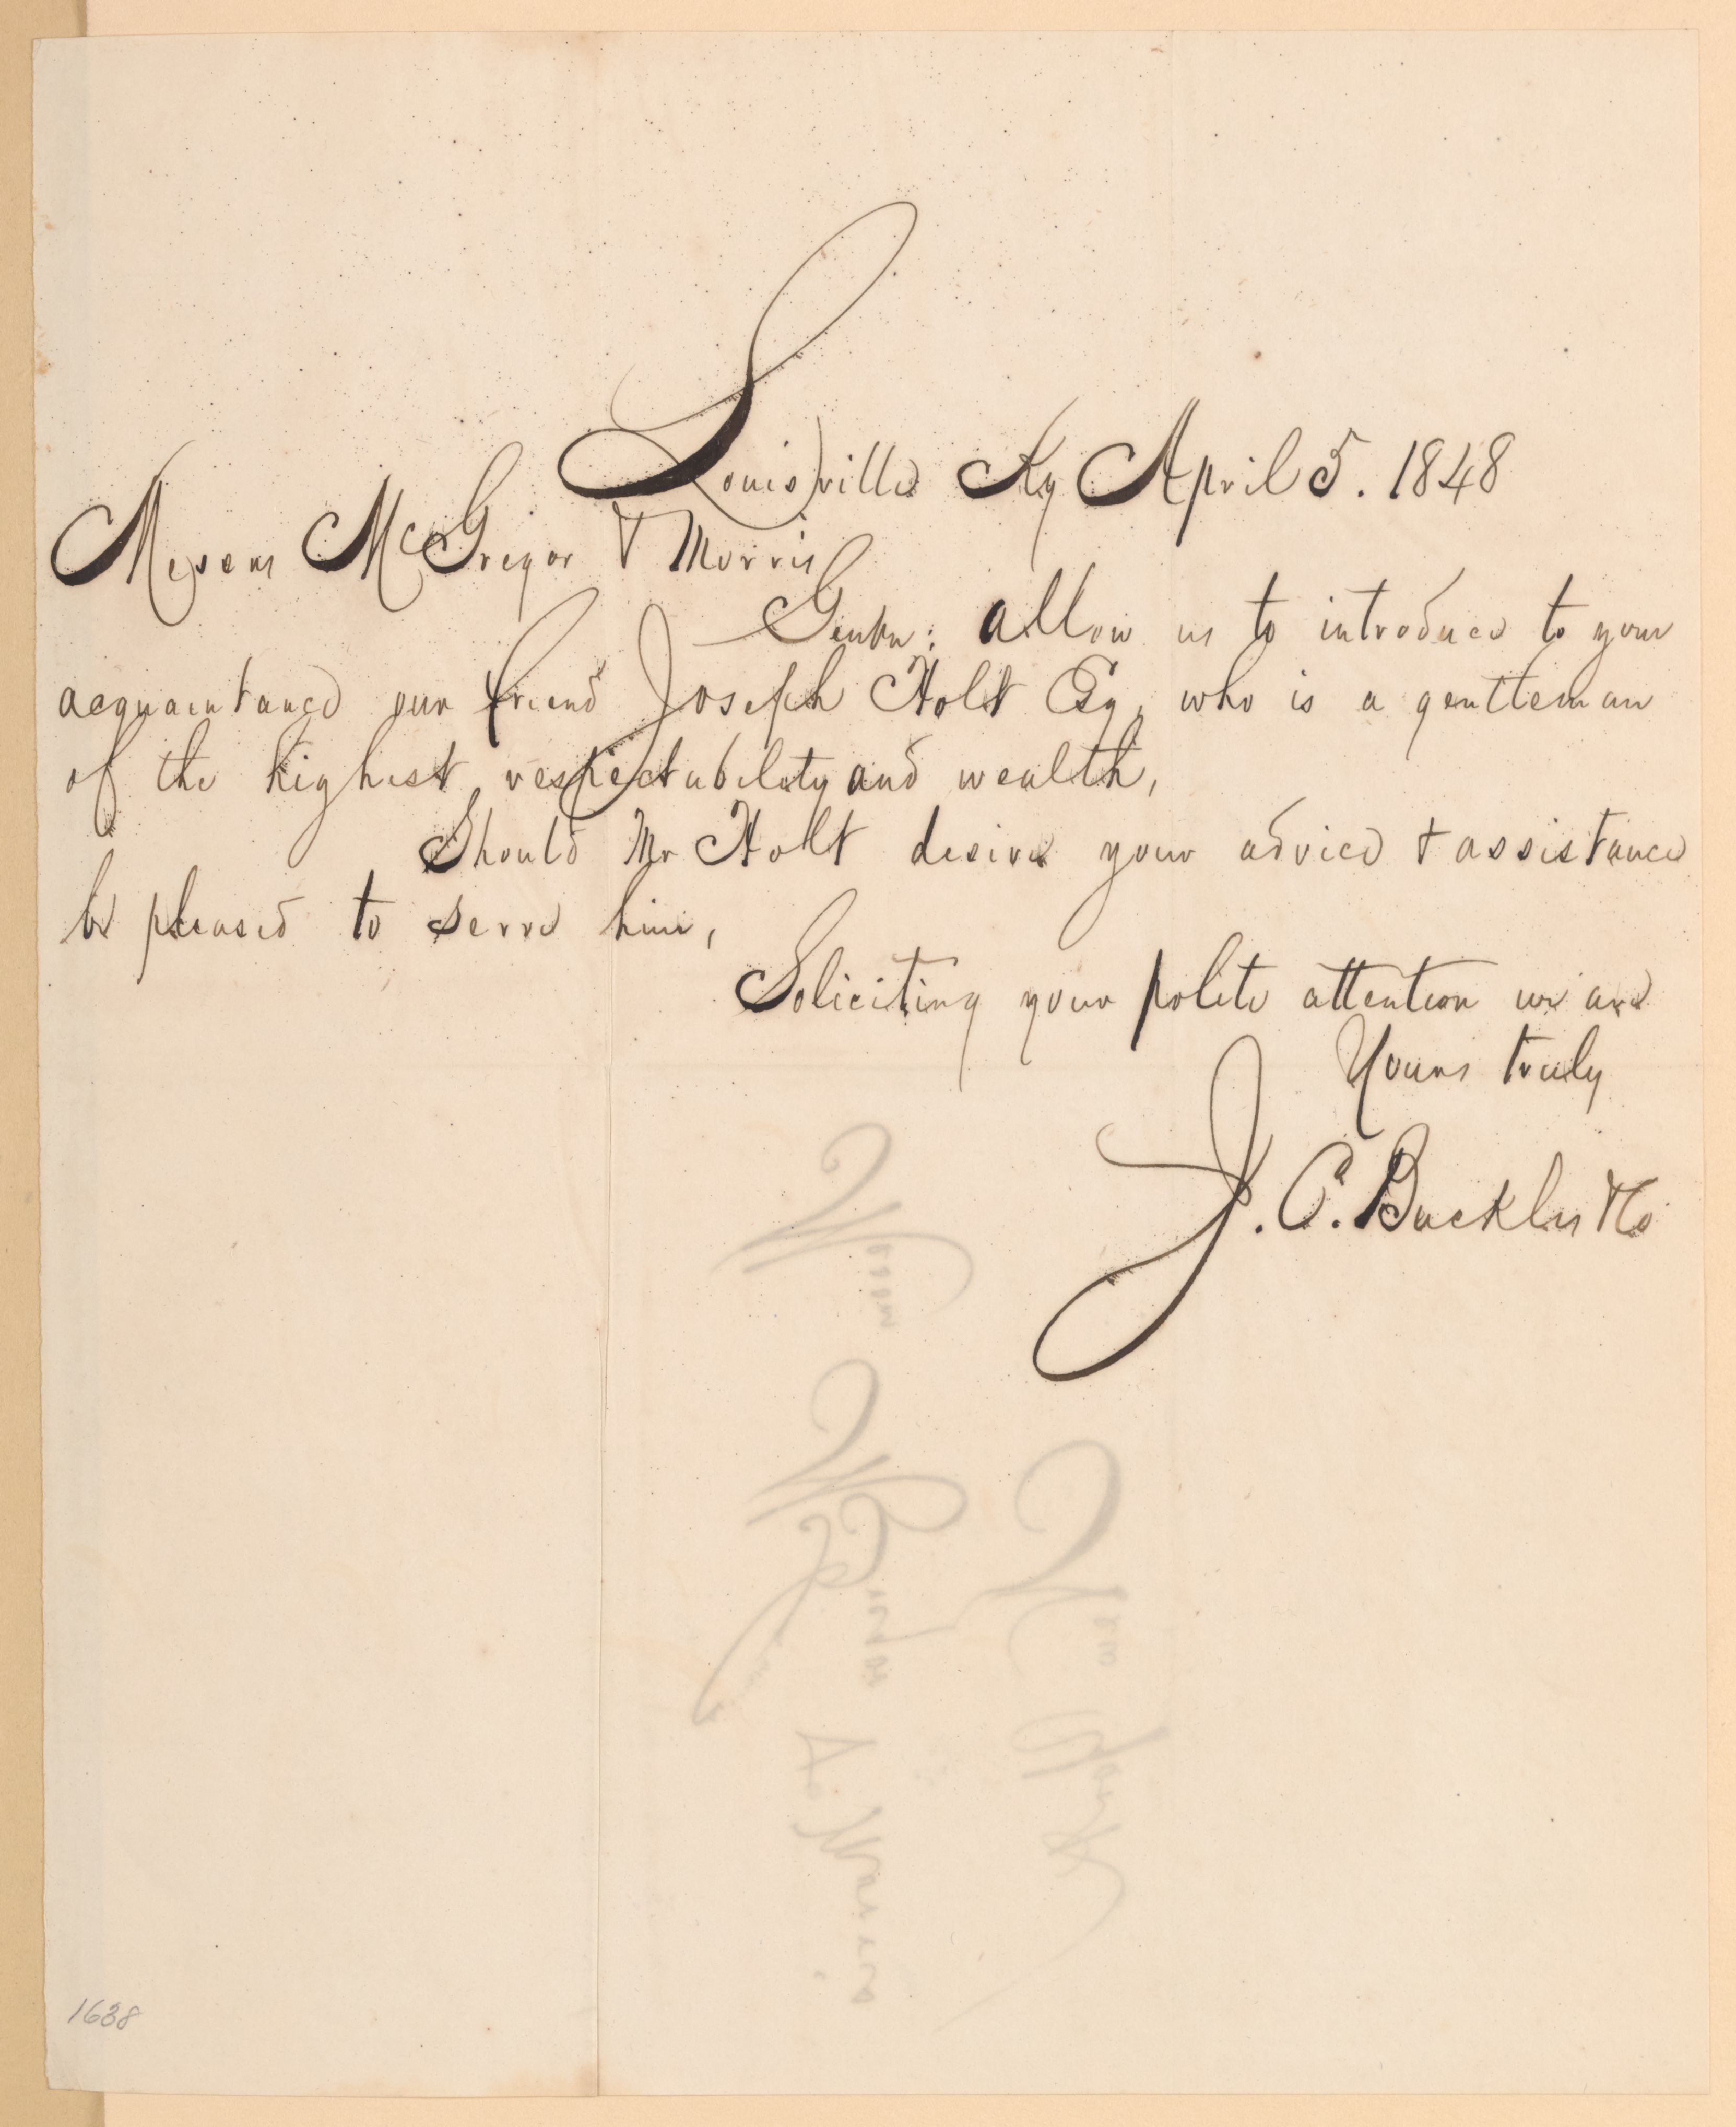 Louisville Ky April 5. 1848
Messrs McGregor & Morris
Gentn: Allow us to introduce to your
acquaintance our friend Joseph Holt Esq, who is a gentleman
of the highest respectability and wealth,
Should Mr Holt desire your advice & assistance
be pleased to serve him,
Soliciting your polite attention we are
Yours truly
J. C. Buckles & Co
Messrs
McGregor
& Morris
New York
1638